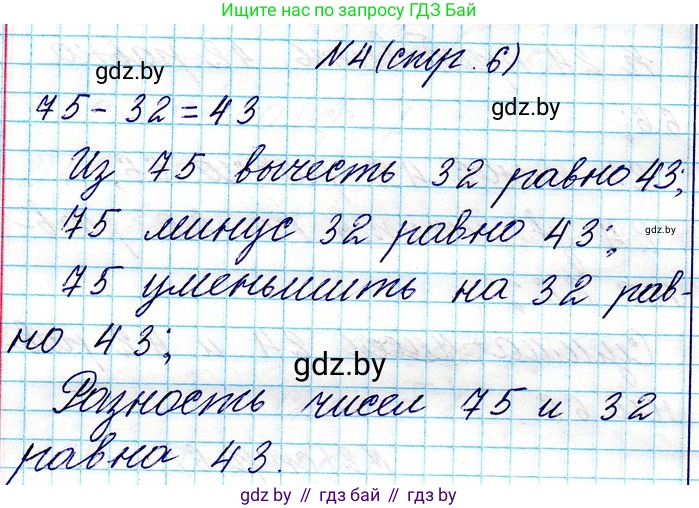 Ищите нас по запросу ГДЗ Бай
N 4 (стр. 6)
gdz.by
gdz.by
75 - 32 = 43
Из 75 вычесть 32 равно 43;
75 минус 32 равно 43;
gdz.by
75 уменьшить на 32 рав-
но 43;
gdz.by
Разность чисел 75 и 32
равна 43.
gdz.by // гдз бай // gdz.by